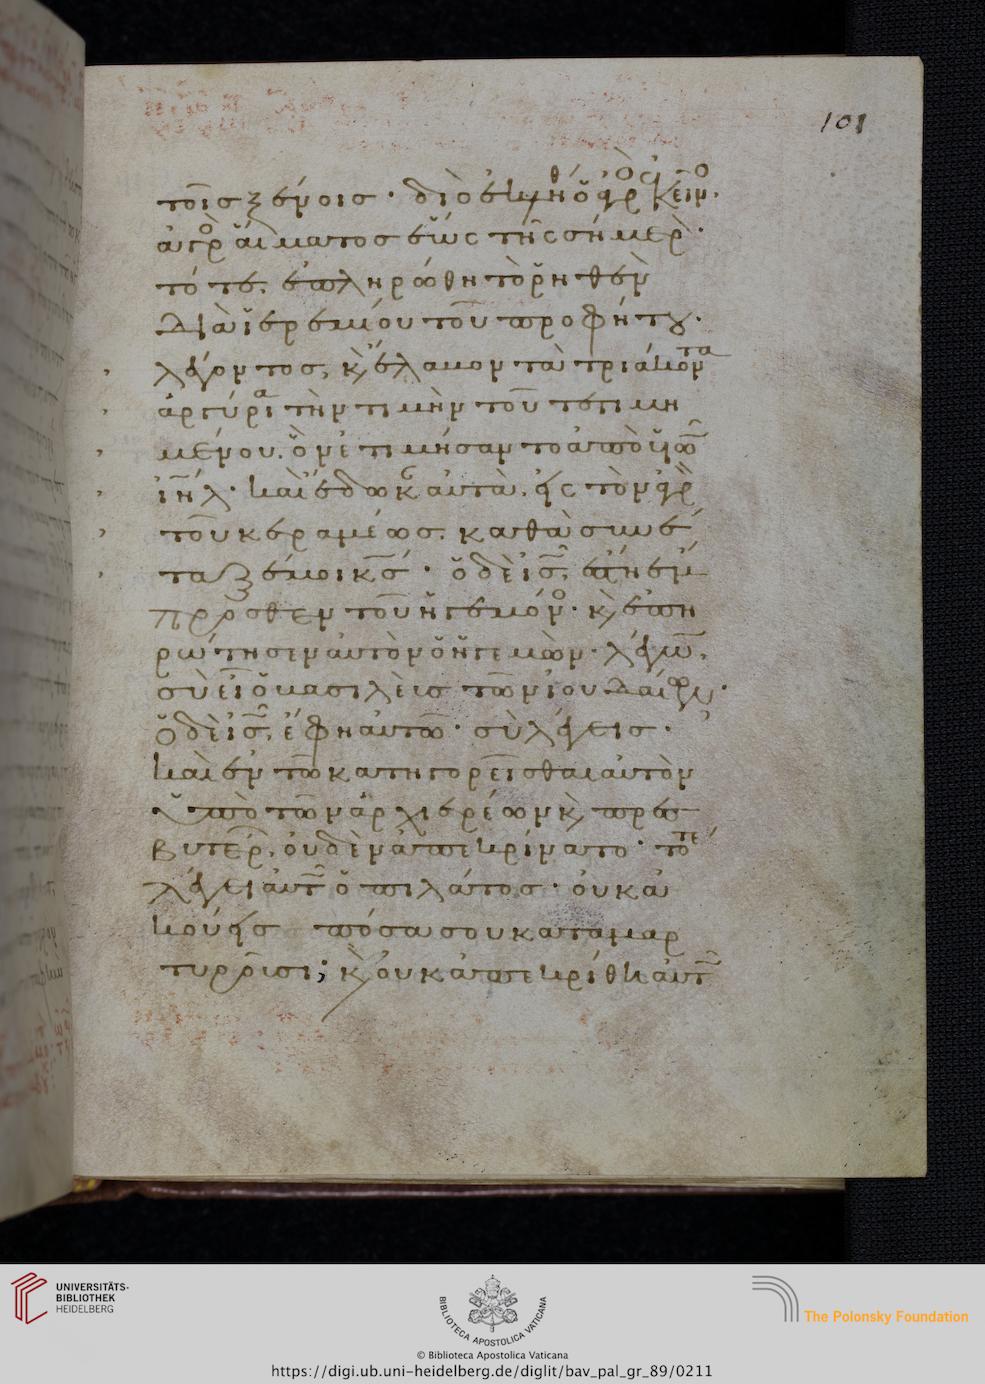 101
τοῖς ξένοις· διὸ ἐκλήθη ὁ ἀγρ κεῖν·
ἀγρ αἵματος ἕως τῆς σήμερ·
τότε ἐπληρώθη τὸ ῥηθὲν
διὰ ἱερεμίου τοῦ προφήτου·
λέγοντος, κ̀ ἔλαβον τὰ τριάκοντα
ἀργύρια τὴν τιμὴν τοῦ τετιμη
μένου. ὃν ἐτιμήσαντο ἀπὸ υἱῶ
ιη̅λ· καὶ ἔδωκ αὐτὰ, εἰς τὸν ἀγρ
τοῦ κεραμέως. καθὰ συνέ
ταξέ μοι κς̅· ὁ δὲ ις̅, ἔστη ἔμ
προσθεν τοῦ ἡγεμόν· κ̀ ἐπη
ρώτησεν αὐτὸν ὁ ἡγεμὼν· λέγων,
σὺ εἶ ὁ βασιλεὺς τῶν ἰουδαίων·
ὁ δὲ ις̅, ἔφη αὐτῶ· σὺ λέγεις·
καὶ ἐν τῶ κατηγορεῖσθαι αὐτὸν
ὑπὸ τῶν ἀρχιερέων κ̀ πρεσ
βυτέρ, οὐδὲν ἀπεκρίνατο· τότε
λέγει αὐτ ὁ πιλάτος· οὐκ ἀ
κούεις πόσα σου καταμαρ
τυροῦσι; κ̀ οὐκ ἀπεκρίθη αὐτ
UNIVERSITÄTS-
BIBLIOTHEK
HEIDELBERG
BIBLIOTECA APOSTOLICA VATICANA
The Polonsky Foundation
© Biblioteca Apostolica Vaticana
https://digi.ub.uni-heidelberg.de/diglit/bav_pal_gr_89/0211